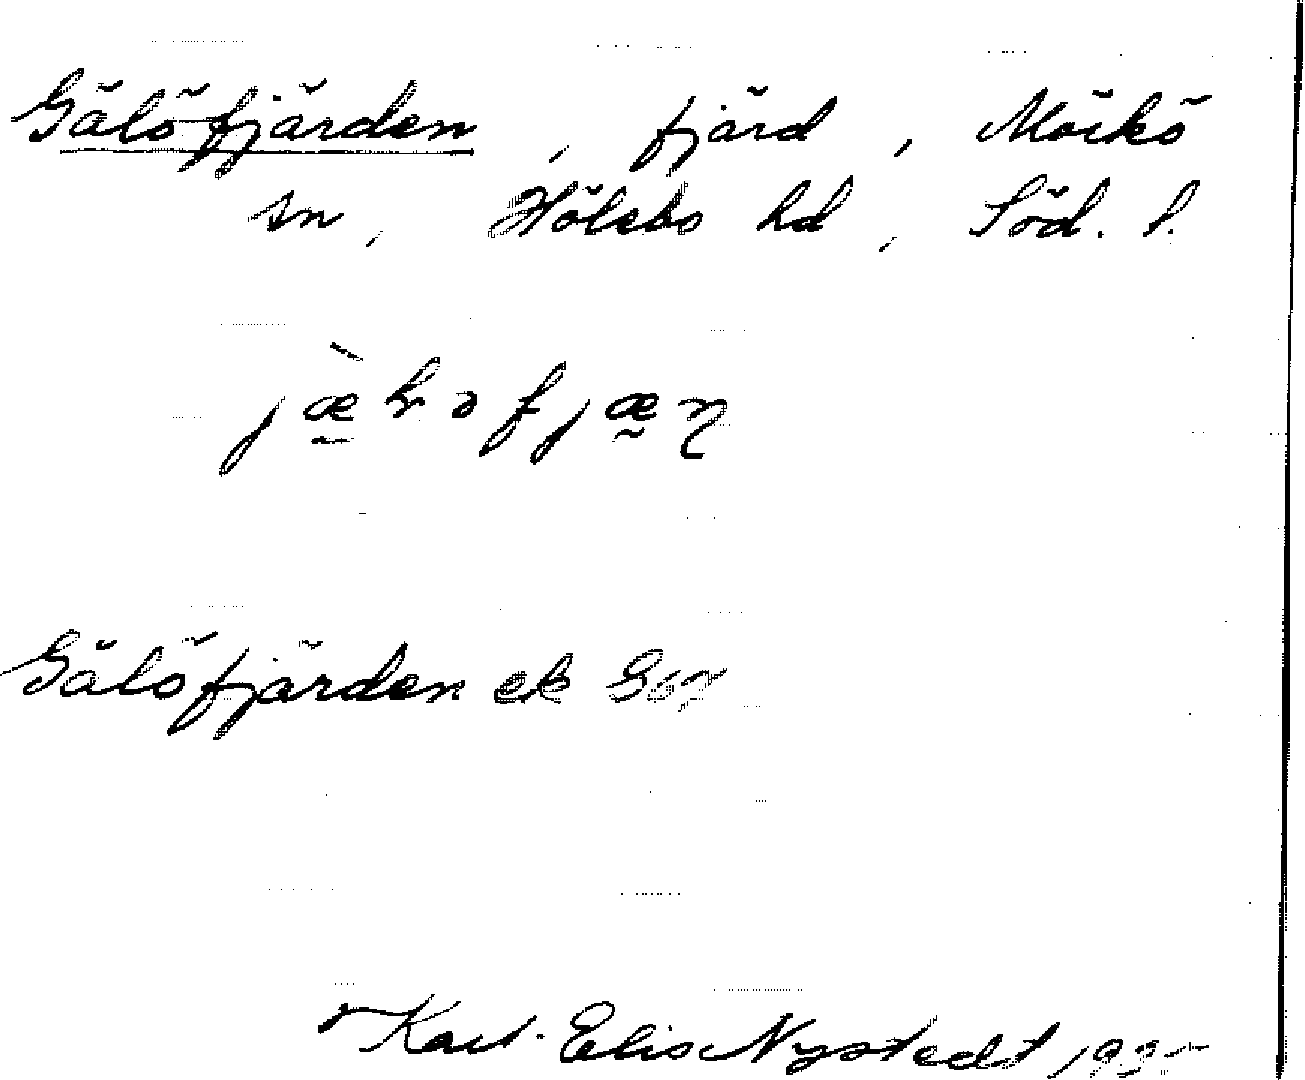 Gälöfjärden, fjärd, Mörkö
sn, Hölebo hd, Söd. l.
Gälöfjärden ek
Karl-Elis Nystedt 1935